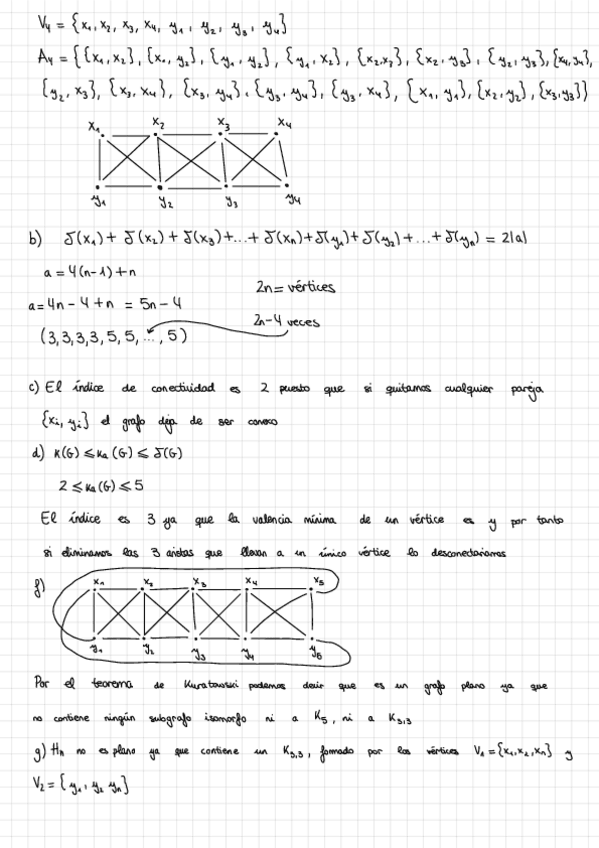 V₄ = {x₁, x₂, x₃, x₄, y₁, y₂, y₃, y₄}
A₄ = {{x₁,x₂}, {x₁,y₂}, {y₁,y₂}, {y₁,x₂}, {x₂,x₃}, {x₂,y₃}, {y₂,y₃}, {x₄,y₄},
{y₂,x₃}, {x₃,x₄}, {x₃,y₄}, {y₃,y₄}, {y₃,x₄}, {x₁,y₁}, {x₂,y₂}, {x₃,y₃}}
x₁ x₂ x₃ x₄
y₁ y₂ y₃ y₄
b) δ(x₁) + δ(x₂) + δ(x₃) + ... + δ(xₙ) + δ(y₁) + δ(y₂) + ... + δ(yₙ) = 2|a|
a = 4(n-1) + n
2n = vértices
a = 4n - 4 + n = 5n - 4
2n-4 veces
(3,3,3,3,5,5, ... , 5)
c) El índice de conectividad es 2 puesto que si quitamos cualquier pareja
{xᵢ, yᵢ} el grafo deja de ser conexo
d) K(G) ≤ Kₐ(G) ≤ δ(G)
2 ≤ Kₐ(G) ≤ 5
El índice es 3 ya que la valencia mínima de un vértice es y por tanto
si eliminamos las 3 aristas que llevan a un único vértice lo desconectaríamos
f) x₁ x₂ x₃ x₄ x₅
y₁ y₂ y₃ y₄ y₅
Por el teorema de Kuratowski podemos decir que es un grafo plano ya que
no contiene ningún subgrafo isomorfo ni a K₅, ni a K₃,₃
g) Hₙ no es plano ya que contiene un K₃,₃, formado por los vértices V₁ = {x₁,x₂,xₙ} y
V₂ = {y₁, y₂ yₙ}